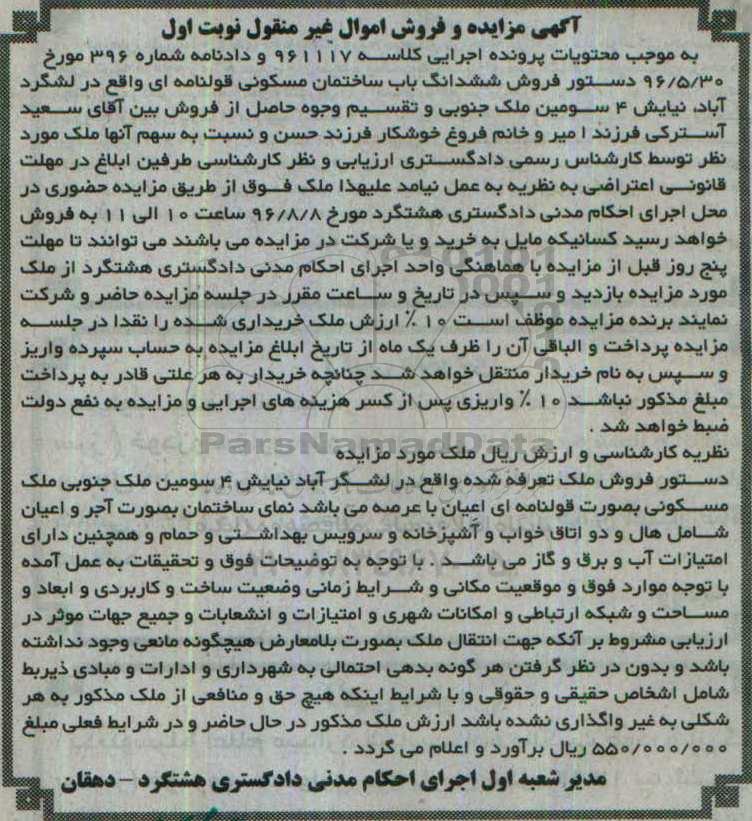 آگهی مزایده و فروش اموال غیر منقول نوبت اول
به موجب محتویات پرونده اجرایی کلاسه ۹۶۱۱۱۷ و دادنامه شماره ۳۹۶ مورخ
۹۶/۵/۳۰ دستور فروش ششدانگ باب ساختمان مسکونی قولنامه ای واقع در لشگرد
آباد، نیایش ۴ سومین ملک جنوبی و تقسیم وجوه حاصل از فروش بین آقای سعید
آسترکی فرزند ا میر و خانم فروغ خوشکار فرزند حسن و نسبت به سهم آنها ملک مورد
نظر توسط کارشناس رسمی دادگستری ارزیابی و نظر کارشناسی طرفین ابلاغ در مهلت
قانونی اعتراضی به نظریه به عمل نیامد علیهذا ملک فوق از طریق مزایده حضوری در
محل اجرای احکام مدنی دادگستری هشتگرد مورخ ۹۶/۸/۸ ساعت ۱۰ الی ۱۱ به فروش
خواهد رسید کسانیکه مایل به خرید و یا شرکت در مزایده می باشند می توانند تا مهلت
پنج روز قبل از مزایده با هماهنگی واحد اجرای احکام مدنی دادگستری هشتگرد از ملک
مورد مزایده بازدید و سپس در تاریخ و ساعت مقرر در جلسه مزایده حاضر و شرکت
نمایند برنده مزایده موظف است ۱۰ ٪ ارزش ملک خریداری شده را نقدا در جلسه
مزایده پرداخت و الباقی آن را ظرف یک ماه از تاریخ ابلاغ مزایده به حساب سپرده واریز
و سپس به نام خریدار منتقل خواهد شد چنانچه خریدار به هر علتی قادر به پرداخت
مبلغ مذکور نباشد ۱۰ ٪ واریزی پس از کسر هزینه های اجرایی و مزایده به نفع دولت
ضبط خواهد شد .
ParsNamadData
نظریه کارشناسی و ارزش ریال ملک مورد مزایده
دستور فروش ملک تعرفه شده واقع در لشگر آباد نیایش ۴ سومین ملک جنوبی ملک
مسکونی بصورت قولنامه ای اعیان با عرصه می باشد نمای ساختمان بصورت آجر و اعیان
شامل هال و دو اتاق خواب و آشپزخانه و سرویس بهداشتی و حمام و همچنین دارای
امتیازات آب و برق و گاز می باشد . با توجه به توضیحات فوق و تحقیقات به عمل آمده
با توجه موارد فوق و موقعیت مکانی و شرایط زمانی وضعیت ساخت و کاربردی و ابعاد و
مساحت و شبکه ارتباطی و امکانات شهری و امتیازات و انشعابات و جمیع جهات موثر در
ارزیابی مشروط بر آنکه جهت انتقال ملک بصورت بلامعارض هیچگونه مانعی وجود نداشته
باشد و بدون در نظر گرفتن هر گونه بدهی احتمالی به شهرداری و ادارات و مبادی ذیربط
شامل اشخاص حقیقی و حقوقی و با شرایط اینکه هیچ حق و منافعی از ملک مذکور به هر
شکلی به غیر واگذاری نشده باشد ارزش ملک مذکور در حال حاضر و در شرایط فعلی مبلغ
۵۵۰/۰۰۰/۰۰۰ ریال برآورد و اعلام می گردد .
مدیر شعبه اول اجرای احکام مدنی دادگستری هشتگرد - دهقان